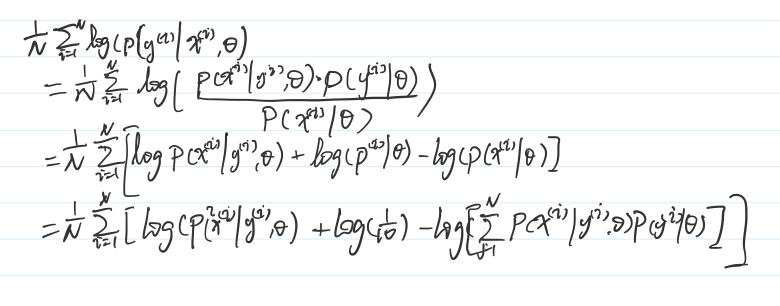 \frac{1}{N} \sum_{i=1}^{N} log(p(y^{(i)} | x^{(i)}, θ)
= \frac{1}{N} \sum_{i=1}^{N} log( \frac{P(x^{(i)} | y^{(i)}, θ) · P(y^{(i)} | θ)}{P(x^{(i)} | θ)} )
= \frac{1}{N} \sum_{i=1}^{N} [log P(x^{(i)} | y^{(i)}, θ) + log(p^{(i)} | θ) - log(p(x^{(i)} | θ)]
= \frac{1}{N} \sum_{i=1}^{N} [log(P(x^{(i)} | y^{(i)}, θ) + log(\frac{1}{10}) - log[\sum_{j=1}^{N} P(x^{(i)} | y^{(j)}, θ) P(y^{j} | θ)]]